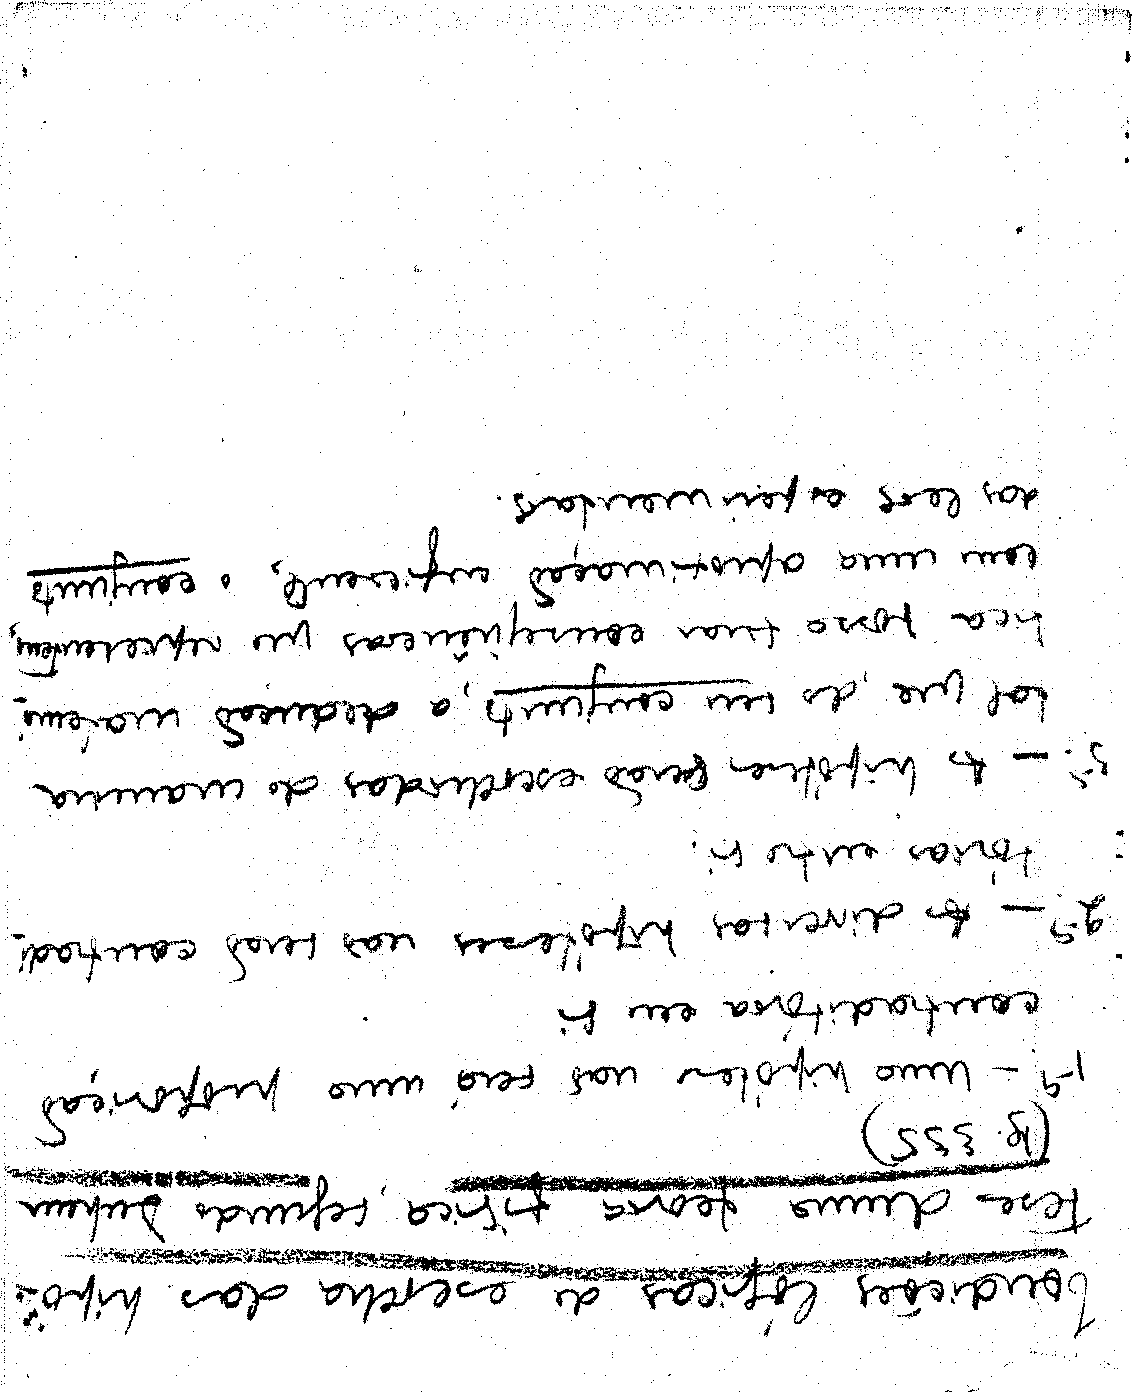 Condições lógicas de escolha das hipó-
teses duma teoria física, segundo Duhem
(pg. 335)
1ª - uma hipótese não será uma proposição
contraditória em si
2ª - As diversas hipóteses não serão contradi-
tórias entre si.
3ª - As hipóteses serão escolhidas de maneira
tal que, do seu conjunto, a dedução matemá-
tica possa tirar consequências que representem,
com uma aproximação suficiente, o conjunto
das leis experimentais.